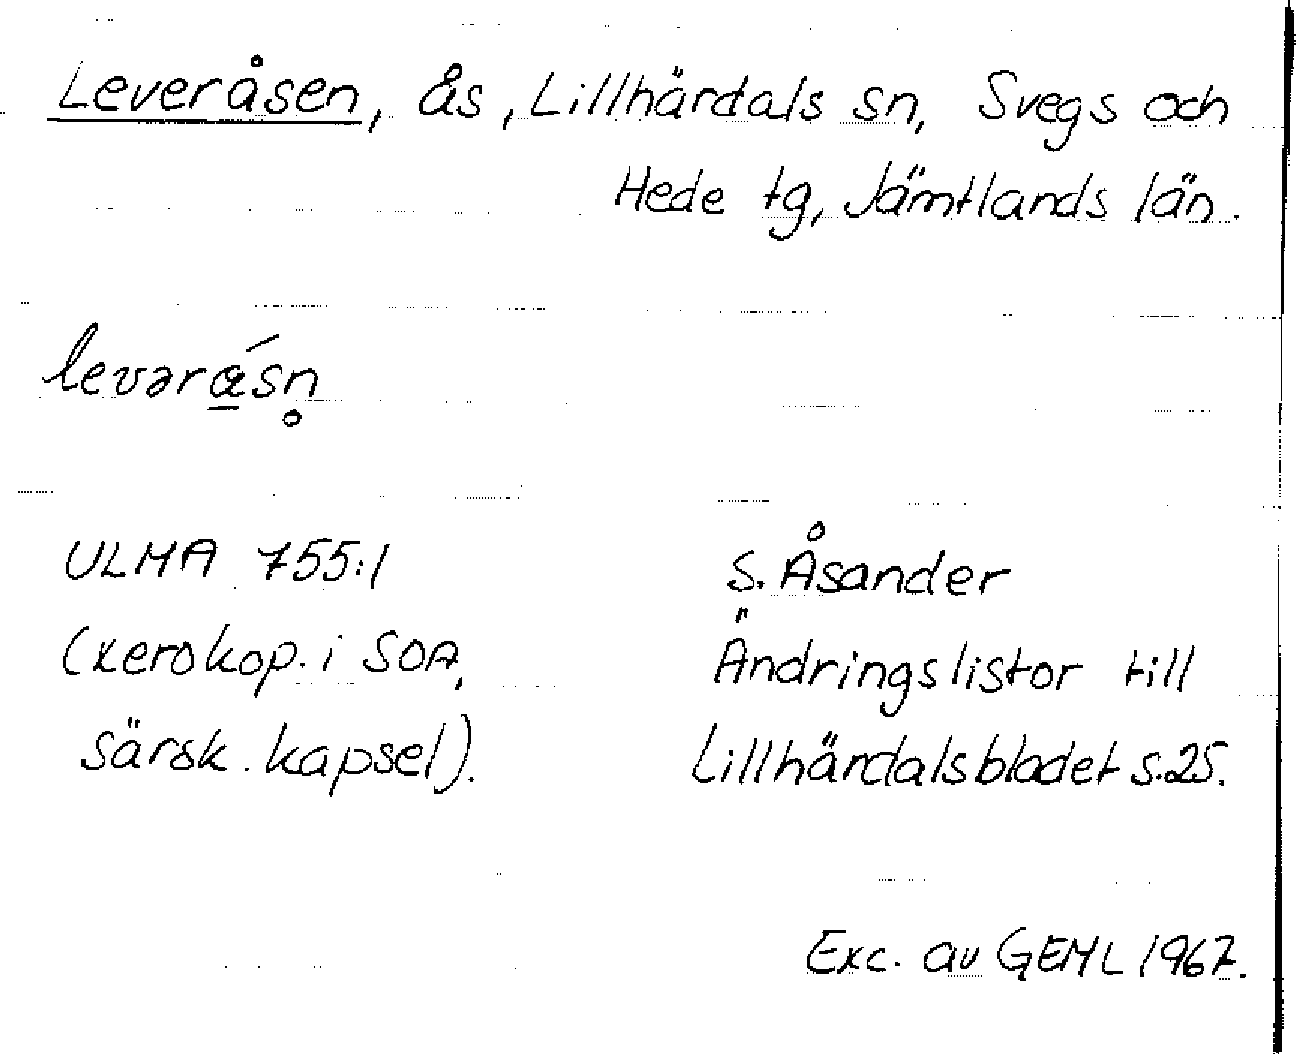 Leveråsen, ås, Lillhärdals sn, Svegs och
Hede tg, Jämtlands län.
levərǽ̠sn̥
ULMA 755:1
(xerokop. i SOA,
särsk. kapsel).
S. Åsander
Ändringslistor till
Lillhärdalsbladet s.25.
Exc. av GEML 1967.